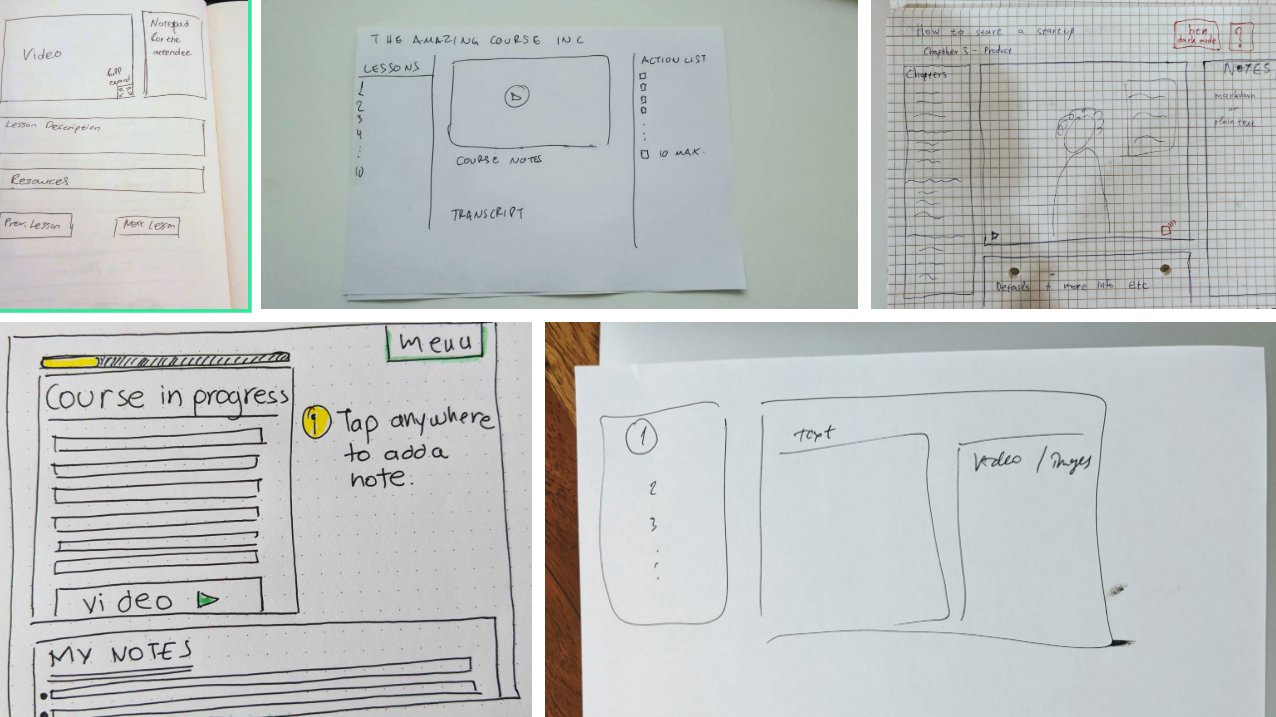 Video
full
expand
Notepad
for the
attendee
Lesson Description
Resources
Prev. Lesson
Next Lesson
THE AMAZING COURSE INC
LESSONS
1
2
3
4
10
COURSE NOTES
TRANSCRIPT
ACTION LIST
10 MAX.
How to start a startup
Chapther 3 - Product
btn
dark mode
?
Chapters
NOTES
markdown
or
plain text
Details + more info etc
Menu
Course in progress
Tap anywhere
to add a
note.
video
MY NOTES
1
2
3
text
video / images